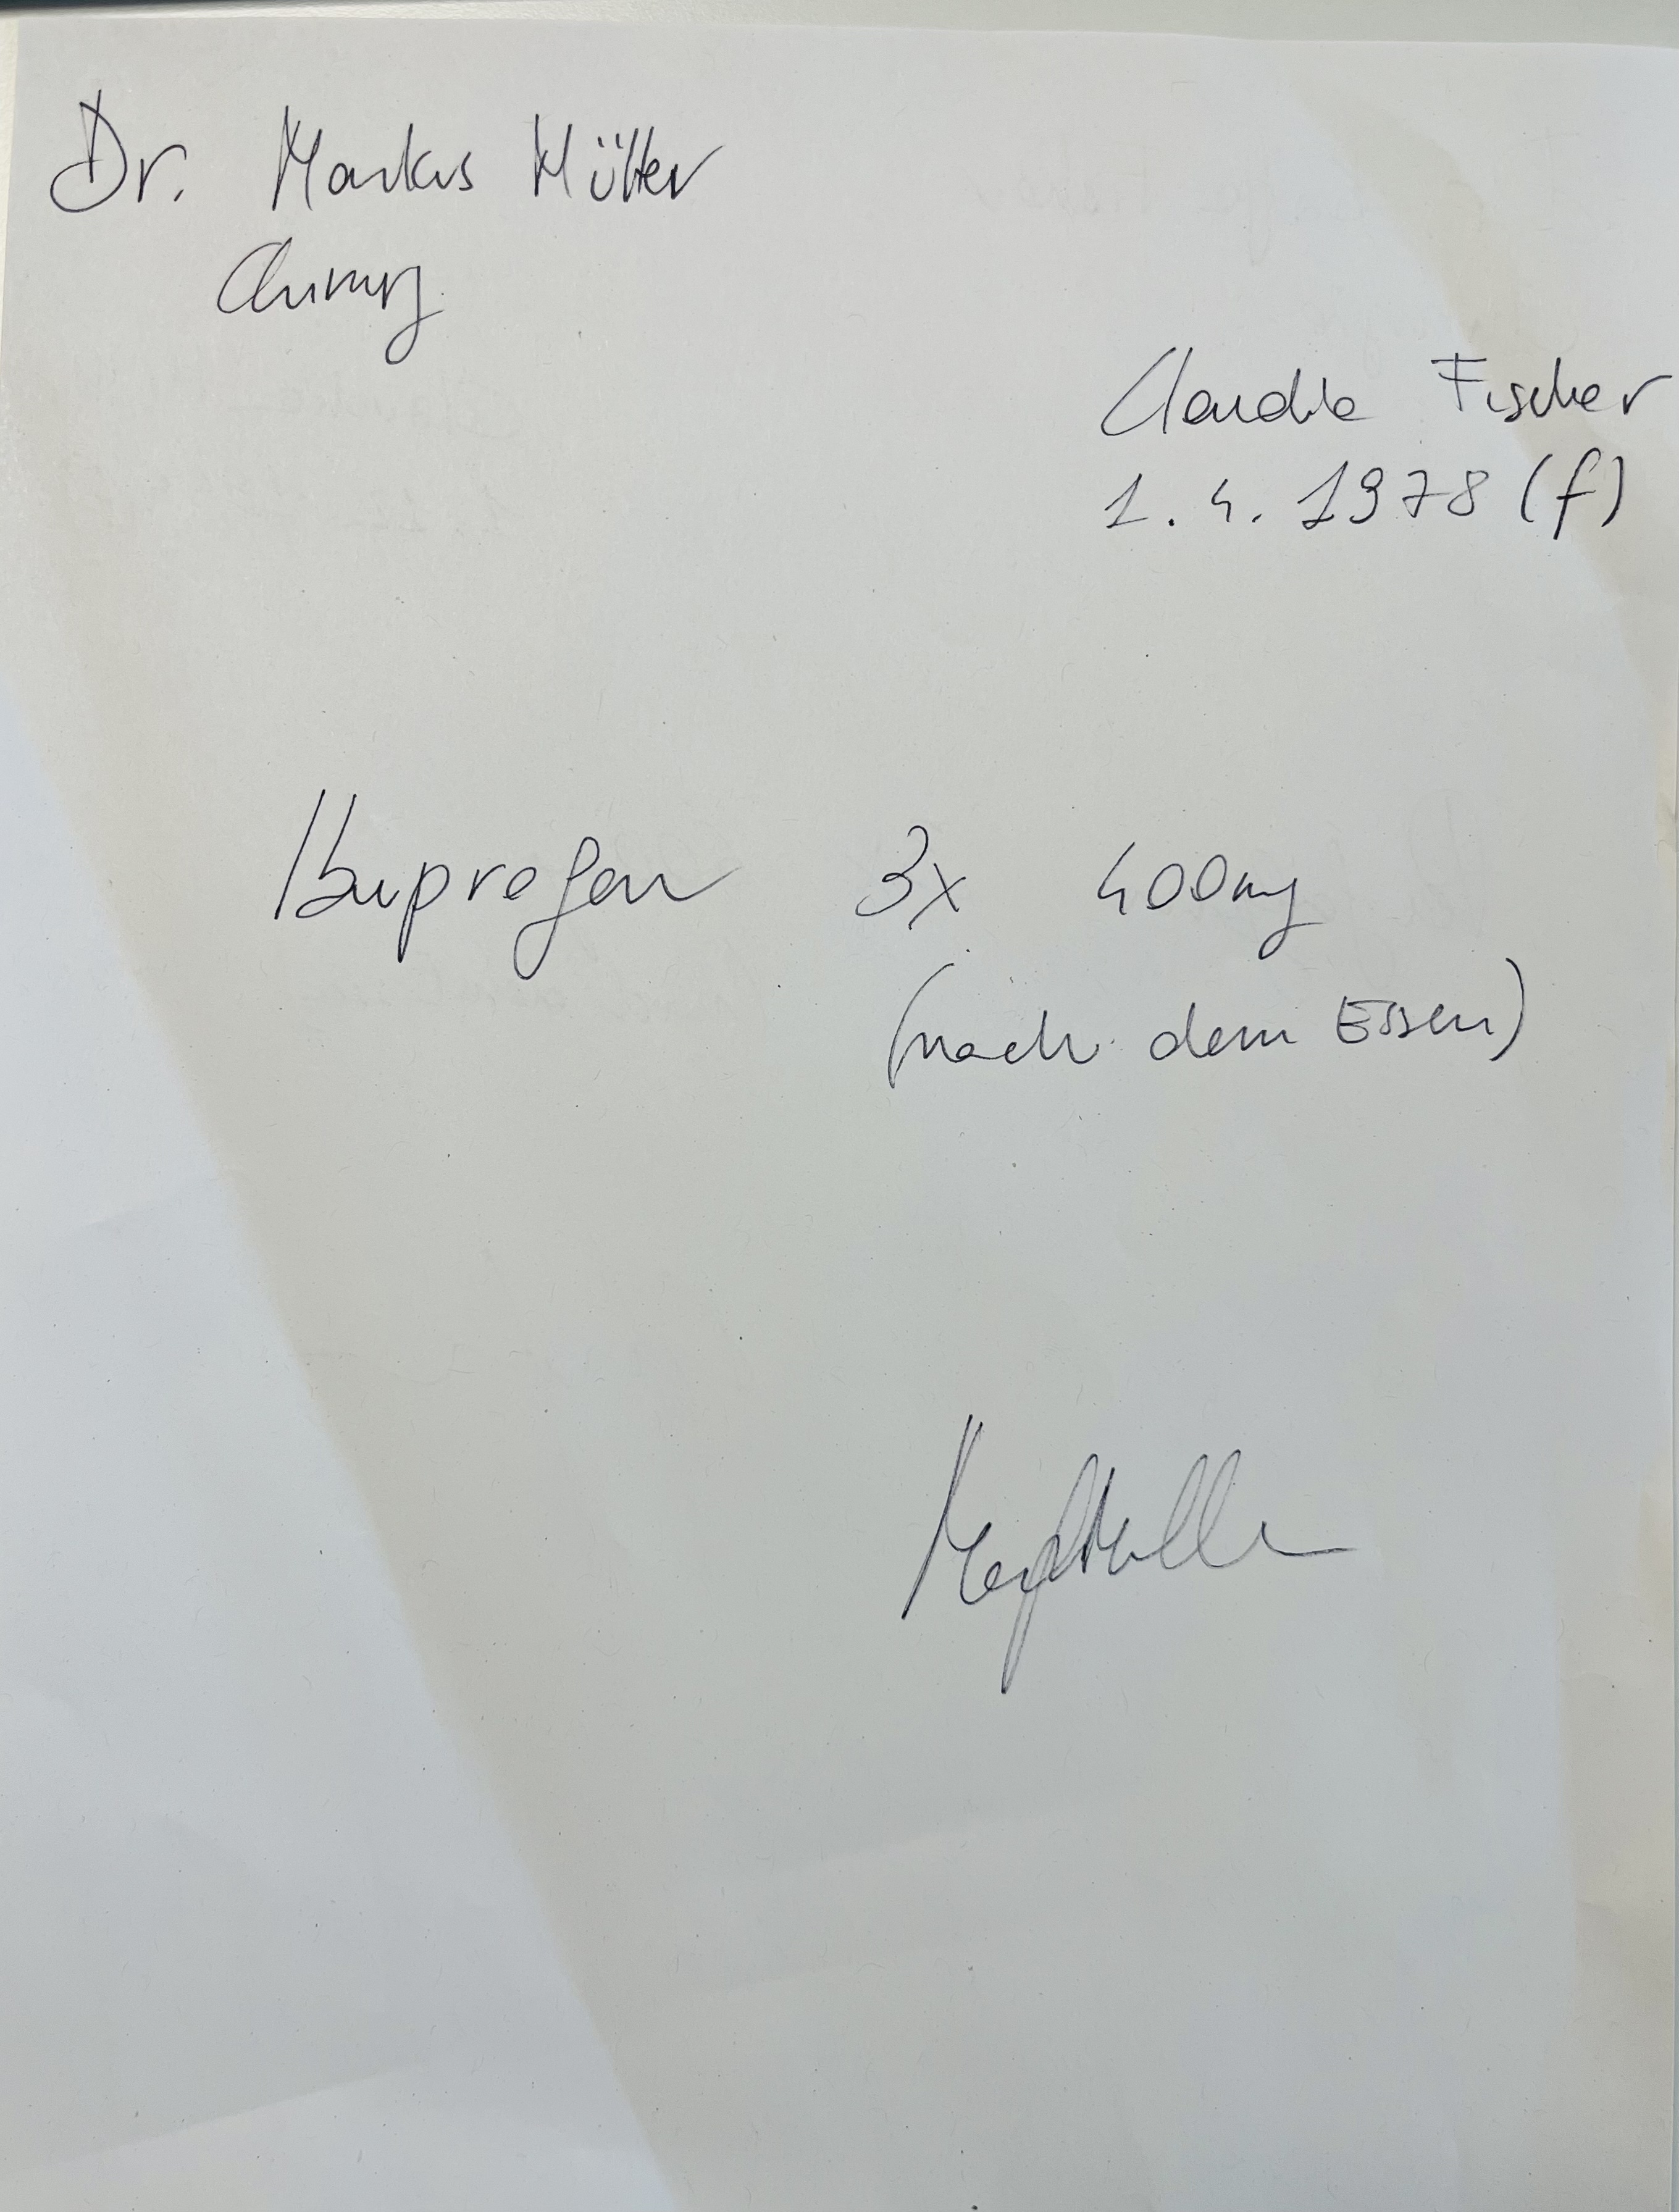 Dr. Markus Müller
Chirurg
Claudia Fischer
1.4.1978 (f)
Ibuprofen 3x 400mg
(nach dem Essen)